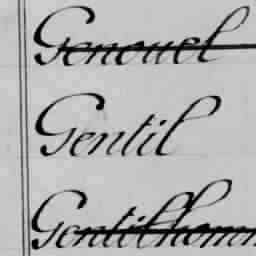 Genouel
Gentil
Gentilhomm